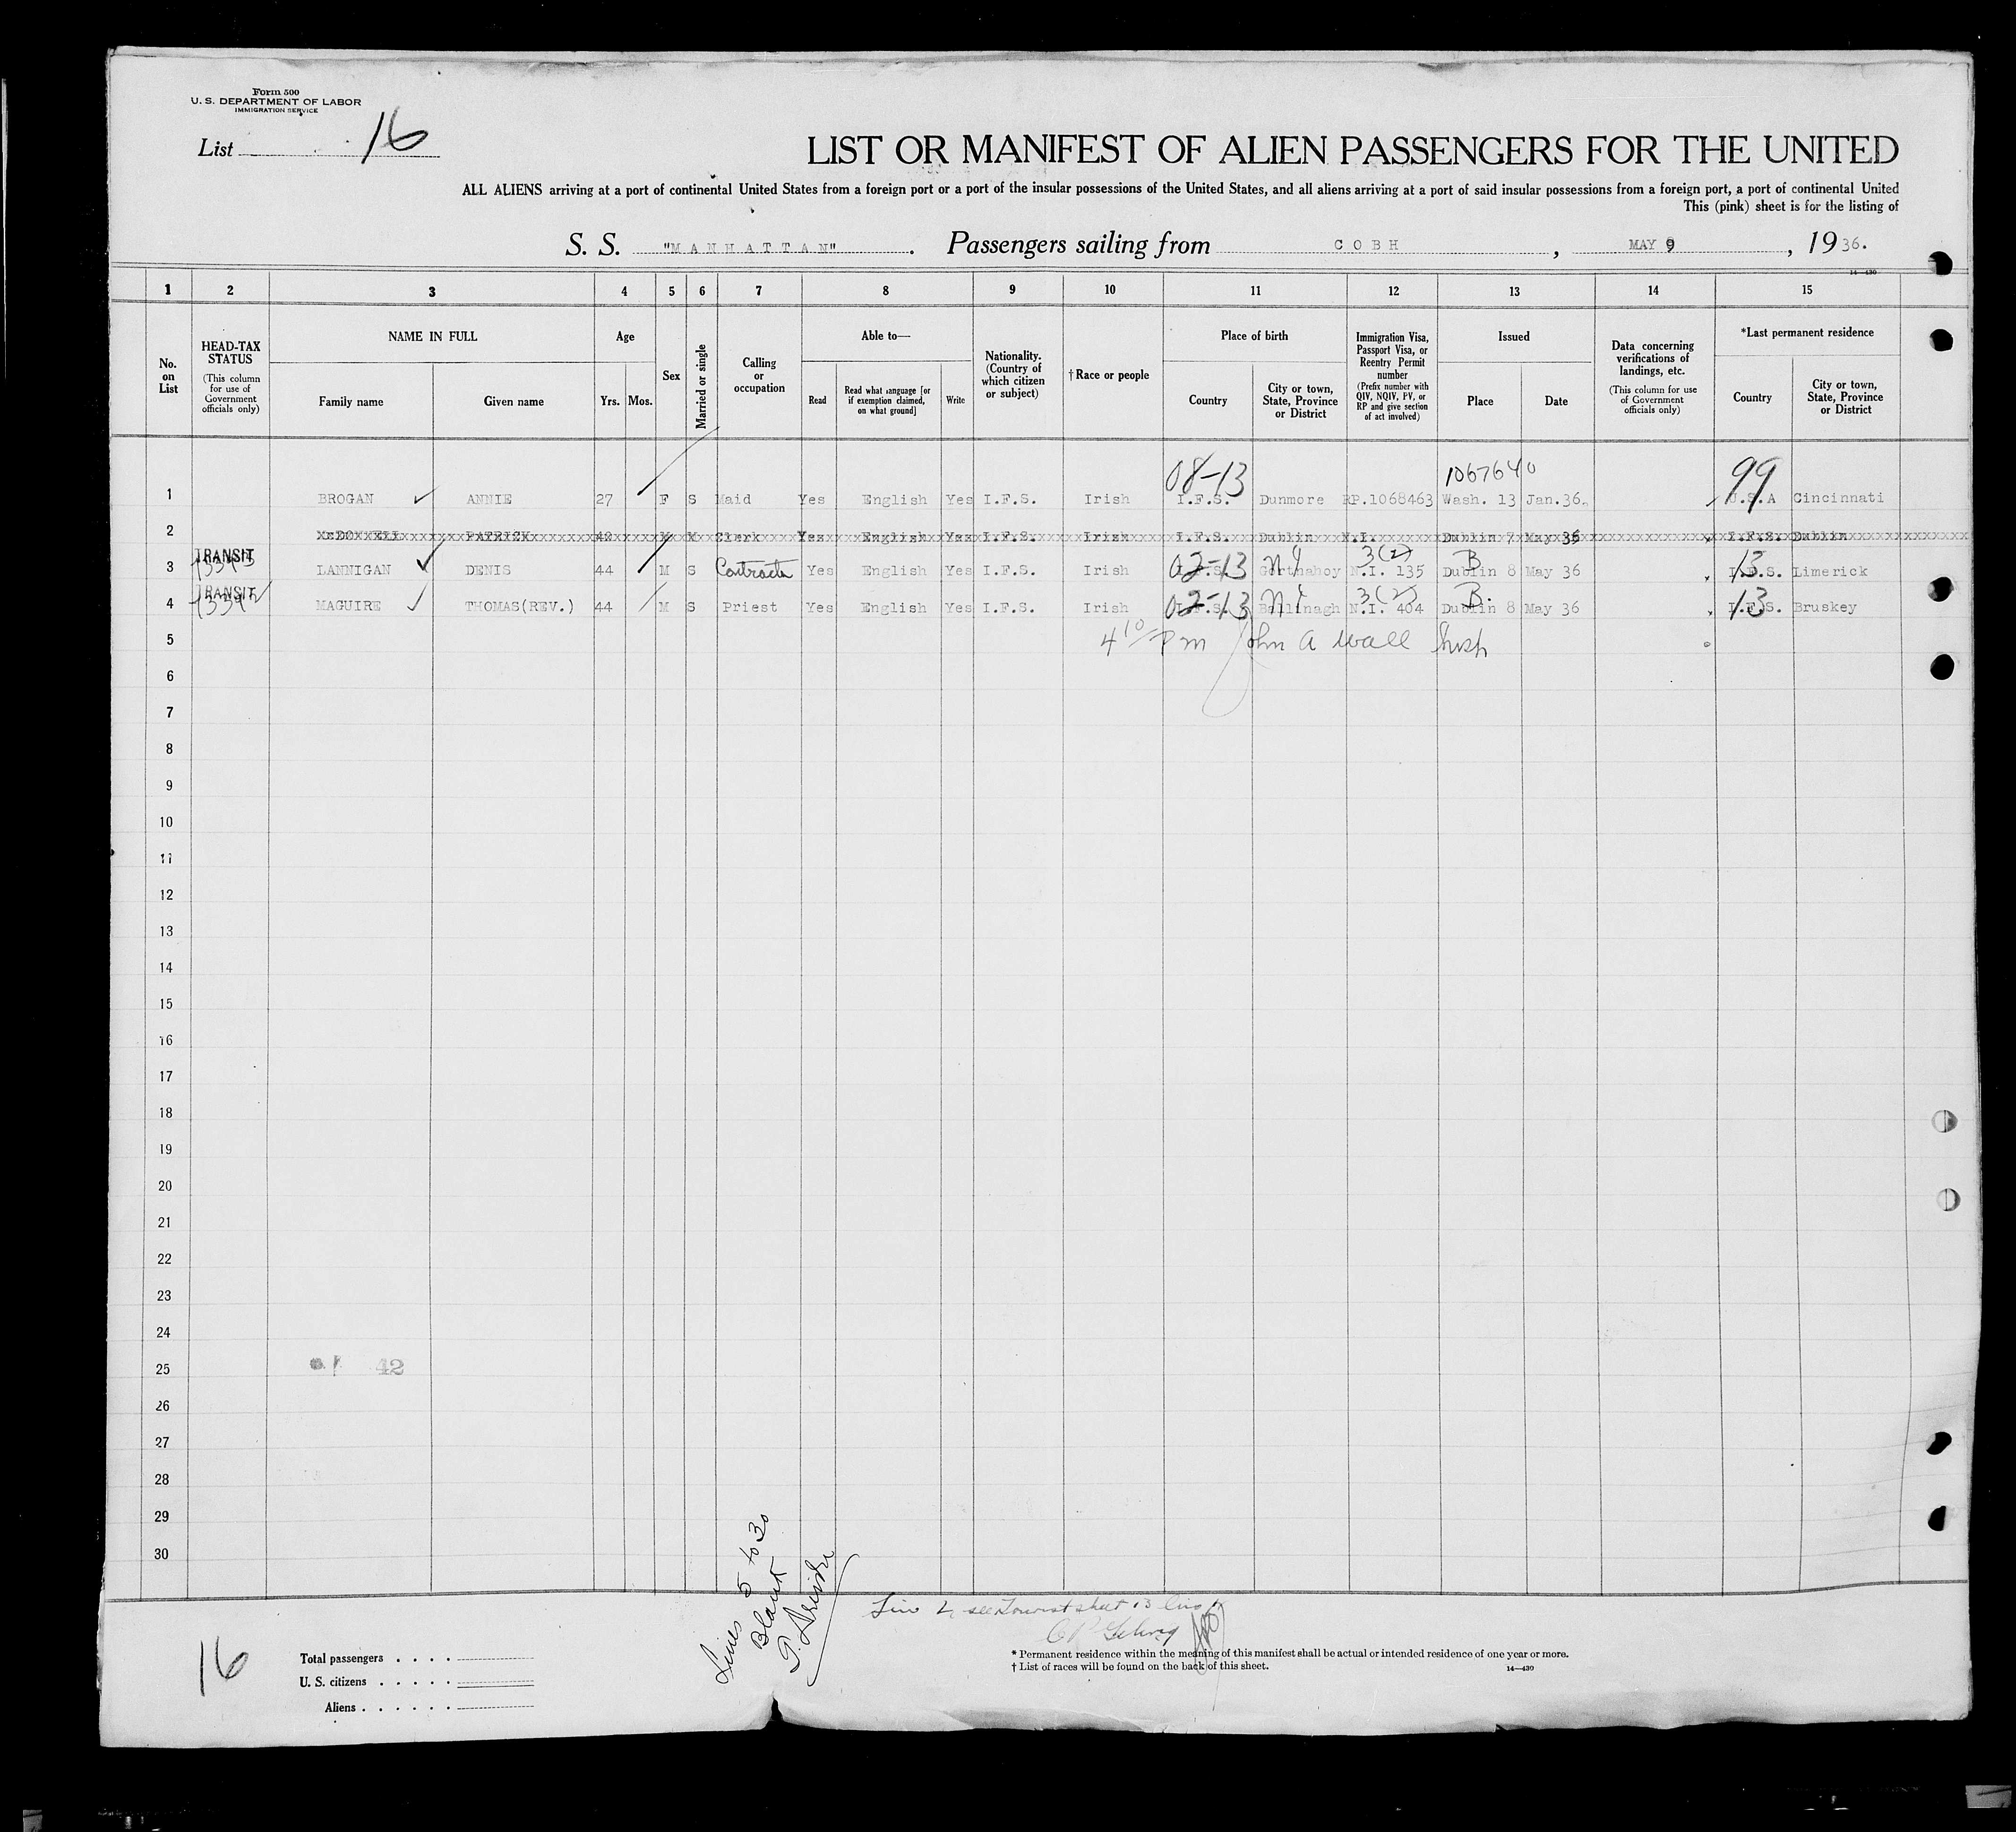 Form 500
U. S. DEPARTMENT OF LABOR
IMMIGRATION SERVICE
List 16
LIST OR MANIFEST OF ALIEN PASSENGERS FOR THE UNITED
ALL ALIENS arriving at a port of continental United States from a foreign port or a port of the insular possessions of the United States, and all aliens arriving at a port of said insular possessions from a foreign port, a port of continental United
This (pink) sheet is for the listing of
S. S. "MANHATTAN". Passengers sailing from COBH, MAY 9, 1936.
14—430
1 2 3 4 5 6 7 8 9 10 11 12 13 14 15
No. on List
HEAD-TAX STATUS
(This column for use of Government officials only)
NAME IN FULL
Family name
Given name
Age
Yrs. Mos.
Sex
Married or single
Calling or occupation
Able to—
Read
Read what language [or if exemption claimed, on what ground]
Write
Nationality. (Country of which citizen or subject)
† Race or people
Place of birth
Country
City or town, State, Province or District
Immigration Visa, Passport Visa, or Reentry Permit number
(Prefix number with QIV, NQIV, PV, or RP and give section of act involved)
Issued
Place
Date
Data concerning verifications of landings, etc.
(This column for use of Government officials only)
*Last permanent residence
Country
City or town, State, Province or District
08-13 1067640 99
1 BROGAN ANNIE 27 F S Maid Yes English Yes I.F.S. Irish I.F.S. Dunmore RP.1068463 Wash. 13 Jan.36. U.S.A Cincinnati
2 McDONNELL PATRICK 42 M M Clerk Yes English Yes I.F.S. Irish I.F.S. Dublin N.I. Dublin 7 May 36 I.F.S. Dublin
TRANSIT 02-13 NY 3(2) B 13
3 LANNIGAN DENIS 44 M S Contractor Yes English Yes I.F.S. Irish I.F.S. Gortnahoy N.I. 135 Dublin 8 May 36 I.F.S. Limerick
TRANSIT 02-13 NY 3(2) B. 13
4 MAGUIRE THOMAS(REV.) 44 M S Priest Yes English Yes I.F.S. Irish I.F.S. Ballinagh N.I. 404 Dublin 8 May 36 I.F.S. Bruskey
5 4 10 Pm John A Wall Insp
6
7
8
9
10
11
12
13
14
15
16
17
18
19
20
21
22
23
24
25 42
26
27
28
29
30
Lines 5 to 30
Blank
Line 2 see Tourist sheet 13 line
16
Total passengers
U. S. citizens
Aliens
* Permanent residence within the meaning of this manifest shall be actual or intended residence of one year or more.
† List of races will be found on the back of this sheet.
14—430